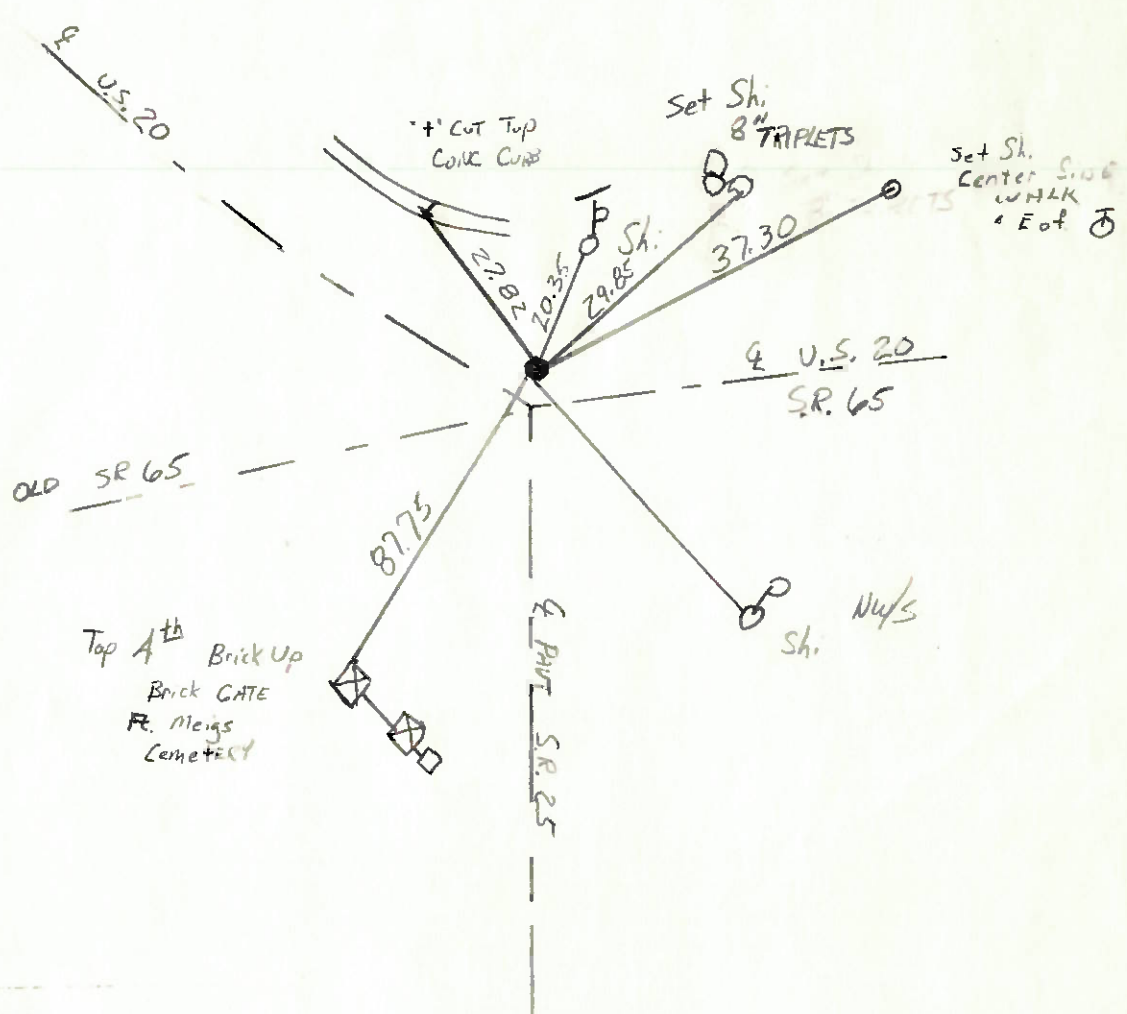 ℄ U.S. 20
"+" CUT TOP
CONC CURB
Set Sh.
8" TRIPLETS
Set Sh.
Center Side
WALK
E of
27.82
20.35
Sh.
29.85
37.30
℄ U.S. 20
S.R. 65
OLD SR 65
87.75
Top 4th Brick Up
Brick GATE
Ft. Meigs
CemetERY
℄ PAVT S.R. 25
Sh. NW/S